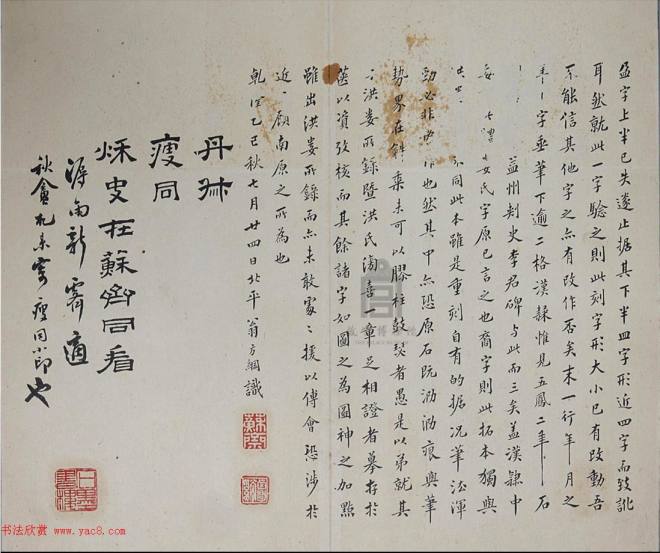 盈字上半已失遂止据其下半四字形近四字而致訛
耳然就此一字驗之則此刻字形大小已有改動吾
不能信其他字之亦有改作否矣末一行年月之
年字垂筆下逾二格漢隸惟見五鳳二年石
益州刺史李君碑与此而三矣盖漢隸中
婁氏字原已言之也裔字則此拓本獨與
不同此本雖是重刻自有的据况筆法渾
勁必非也然其中亦恐原石既泐泐痕與筆
勢界在斜桑未可以膠柱鼓瑟者愚是以弟就其
洪婁所錄暨洪氏陶喜一章足相證者摹存於
篋以資攷核而其餘諸字如圖之為圖神之加點
雖出洪婁所錄而亦未敢處處援以傅會恐涉於
近顧南原之所為也
乾隆乙巳秋七月廿四日北平翁方綱識
丹叔
瘦同
穌史在蘇齋同看
瀕雨新霽適
秋盦札来寄瘦同小印也
书法欣赏 www.yac8.com